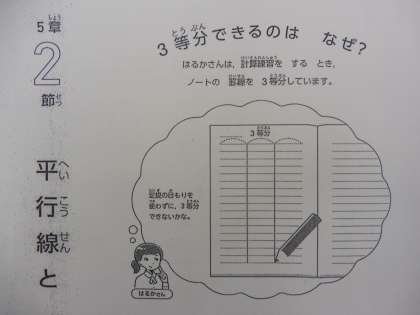 5章
2
節
平行線と
3等分できるのは なぜ?
はるかさんは, 計算練習を する とき,
ノートの 罫線を 3等分しています。
3等分
定規の目もりを
使わずに, 3等分
できないかな。
はるかさん